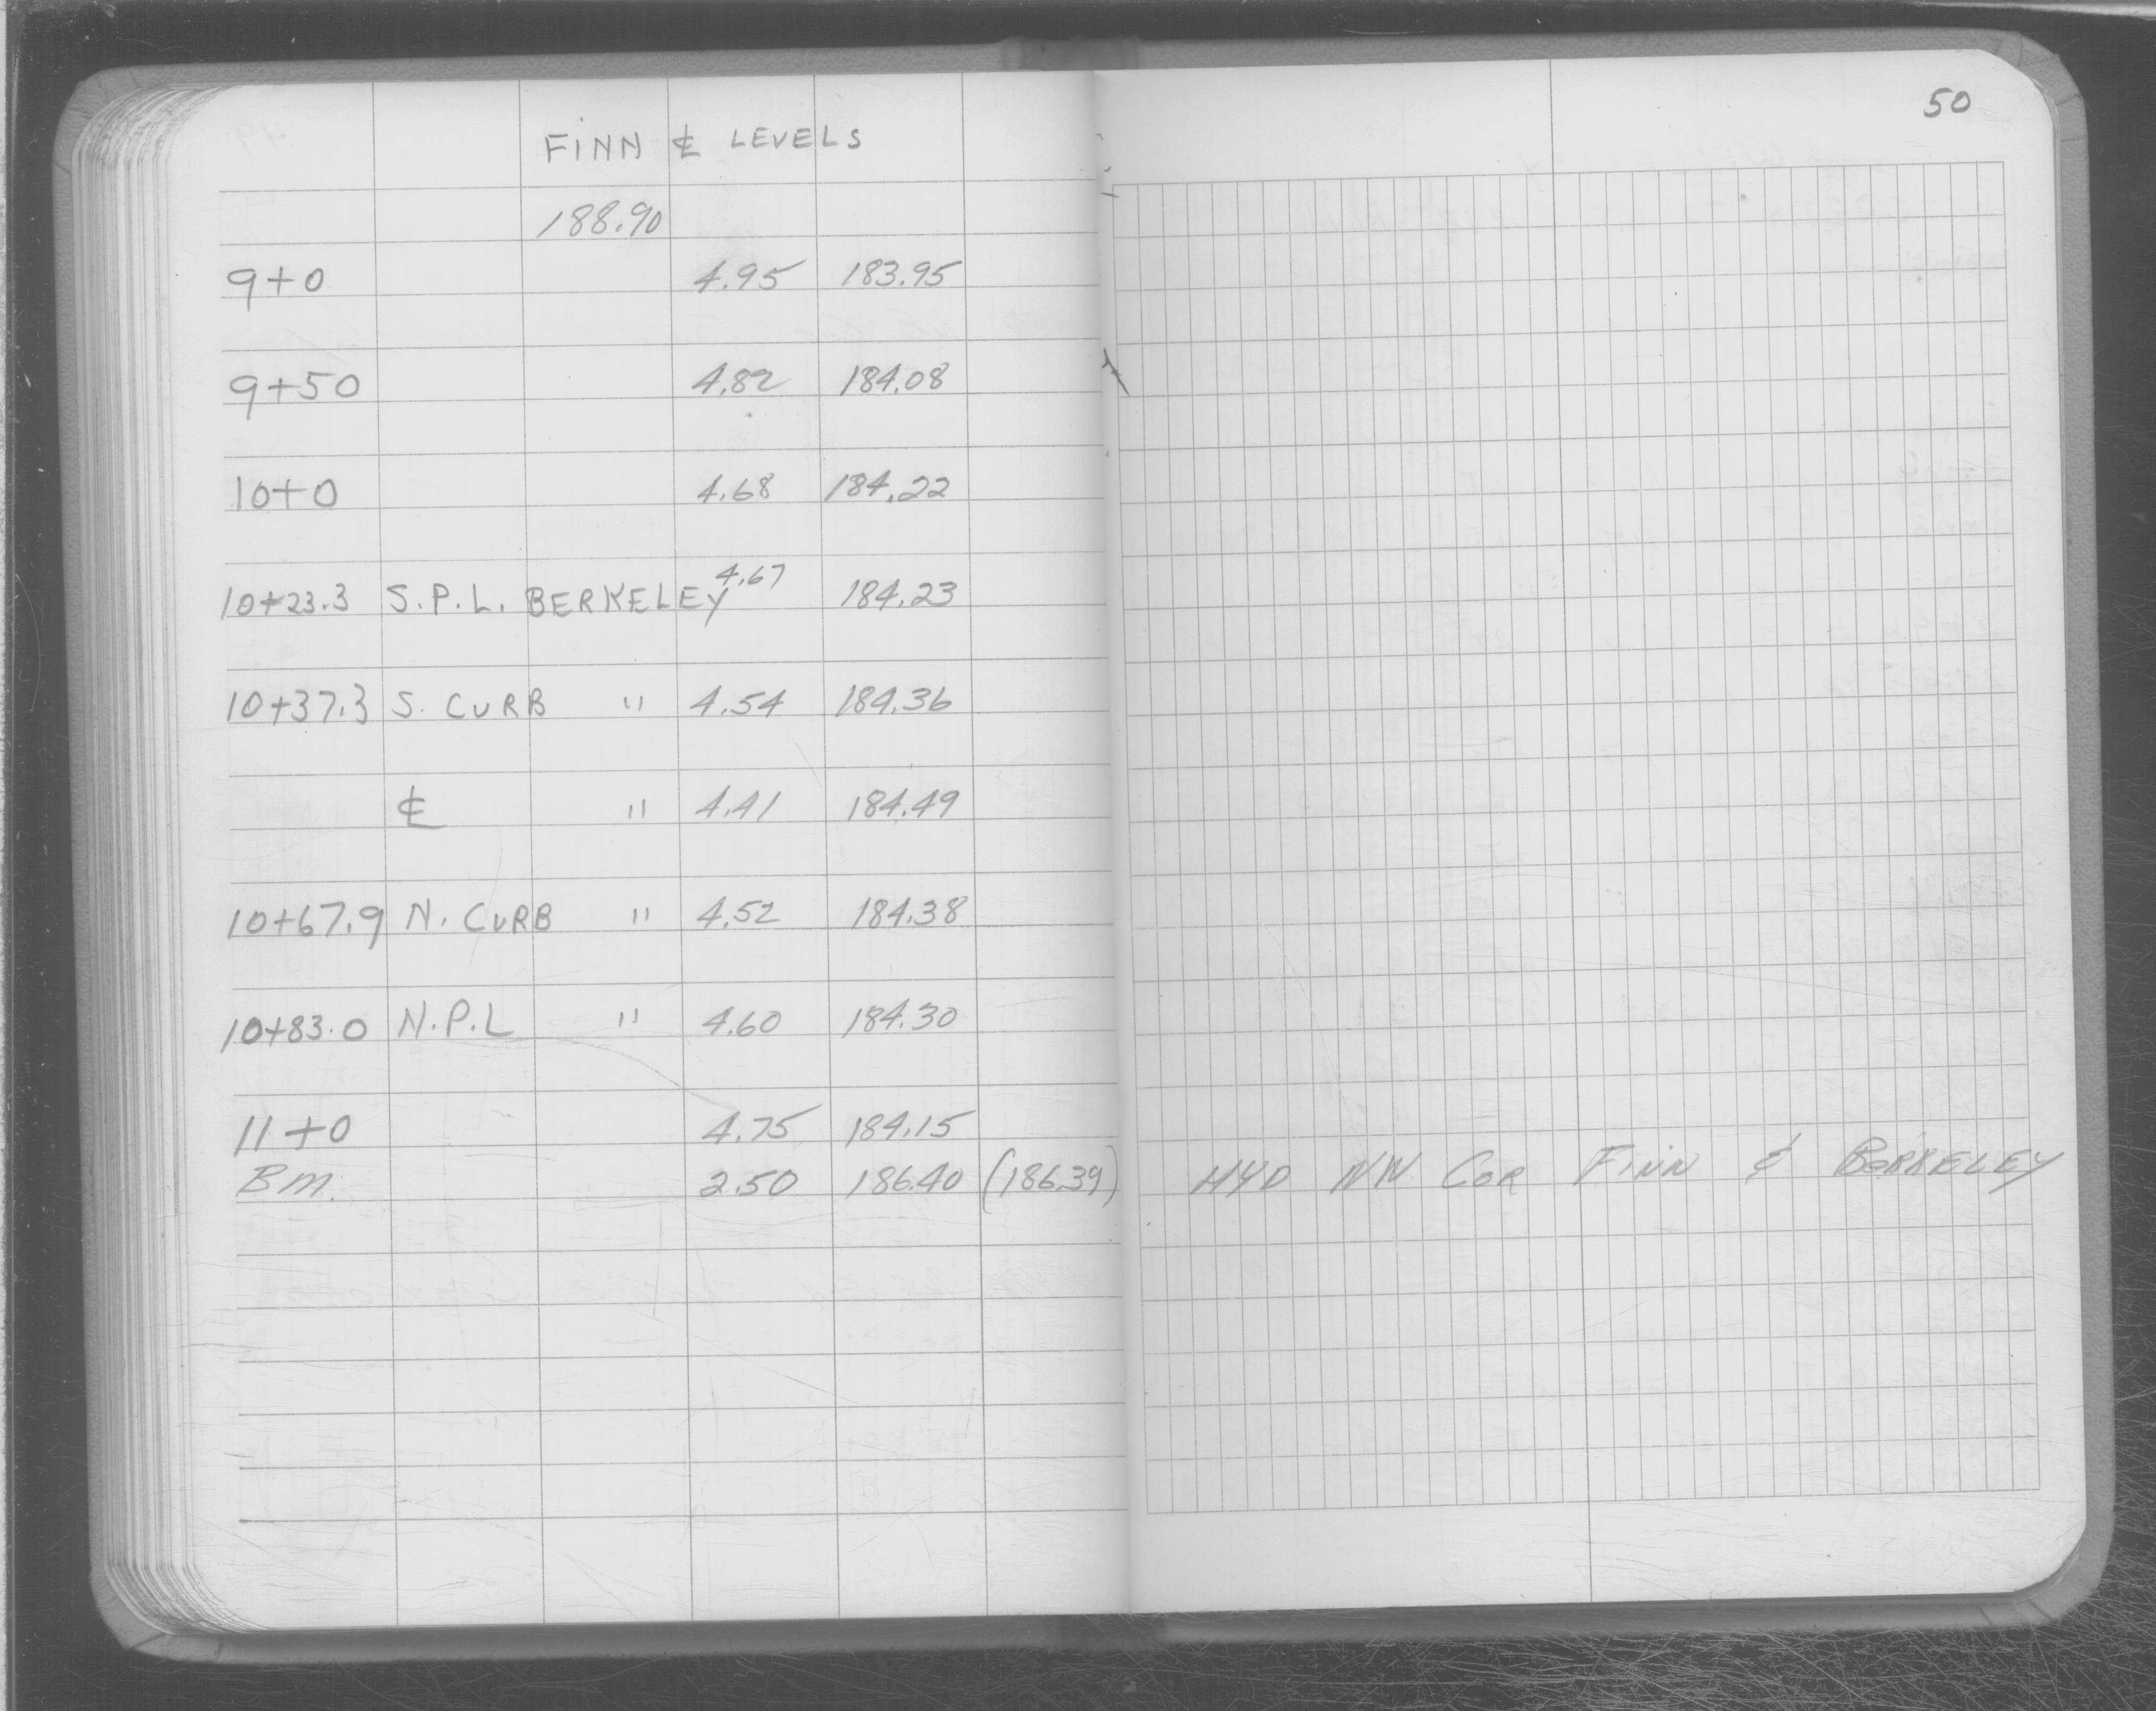 50
FINN ℄ LEVELS
188.90
9+0 4.95 183.95
9+50 4.82 184.08
10+0 4.68 184.22
10+23.3 S.P.L. BERKELEY 4.67 184.23
10+37.3 S. CURB " 4.54 184.36
℄ " 4.41 184.49
10+67.9 N. CURB " 4.52 184.38
10+83.0 N.P.L " 4.60 184.30
11+0 4.75 184.15
BM. 2.50 186.40 (186.39) HYD NW COR FINN & BERKELEY